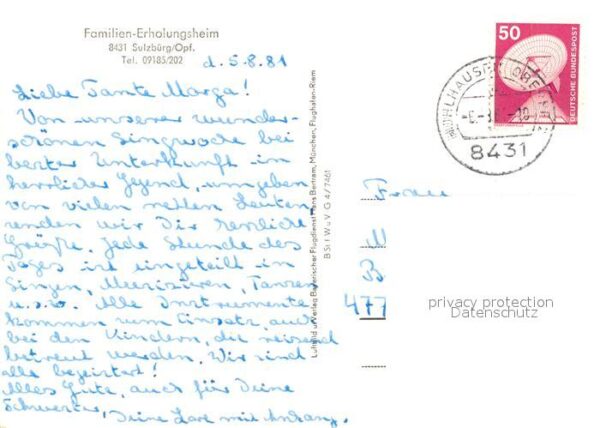 Familien-Erholungsheim
8431 Sulzbürg/Opf.
Tel. 09185/202
d. 5.8.81
Liebe Tante Marga!
Von unserer wunder-
schönen Singwoche bei
bester Unterkunft in
herrlicher Gegend, umgeben
von vielen netten Leuten
senden wir Dir herzliche
Grüße. Jede Stunde des
Tages ist eingeteilt in
Singen, Musizieren, Tanzen
u.s.w. Alle Instrumente
kommen zum Einsatz, auch
bei den Kindern, die reizend
betreut werden. Wir sind
alle begeistert!
Alles Gute, auch für Deine
Schwester, Deine Lore mit Anhang.
Luftbild u. Verlag Bayerischer Flugdienst Hans Bertram, München, Flughafen-Riem
B St I W u V G 4/7461
50
DEUTSCHE BUNDESPOST
MÜHLHAUSEN
8431
Frau
N
B
477
privacy protection
Datenschutz